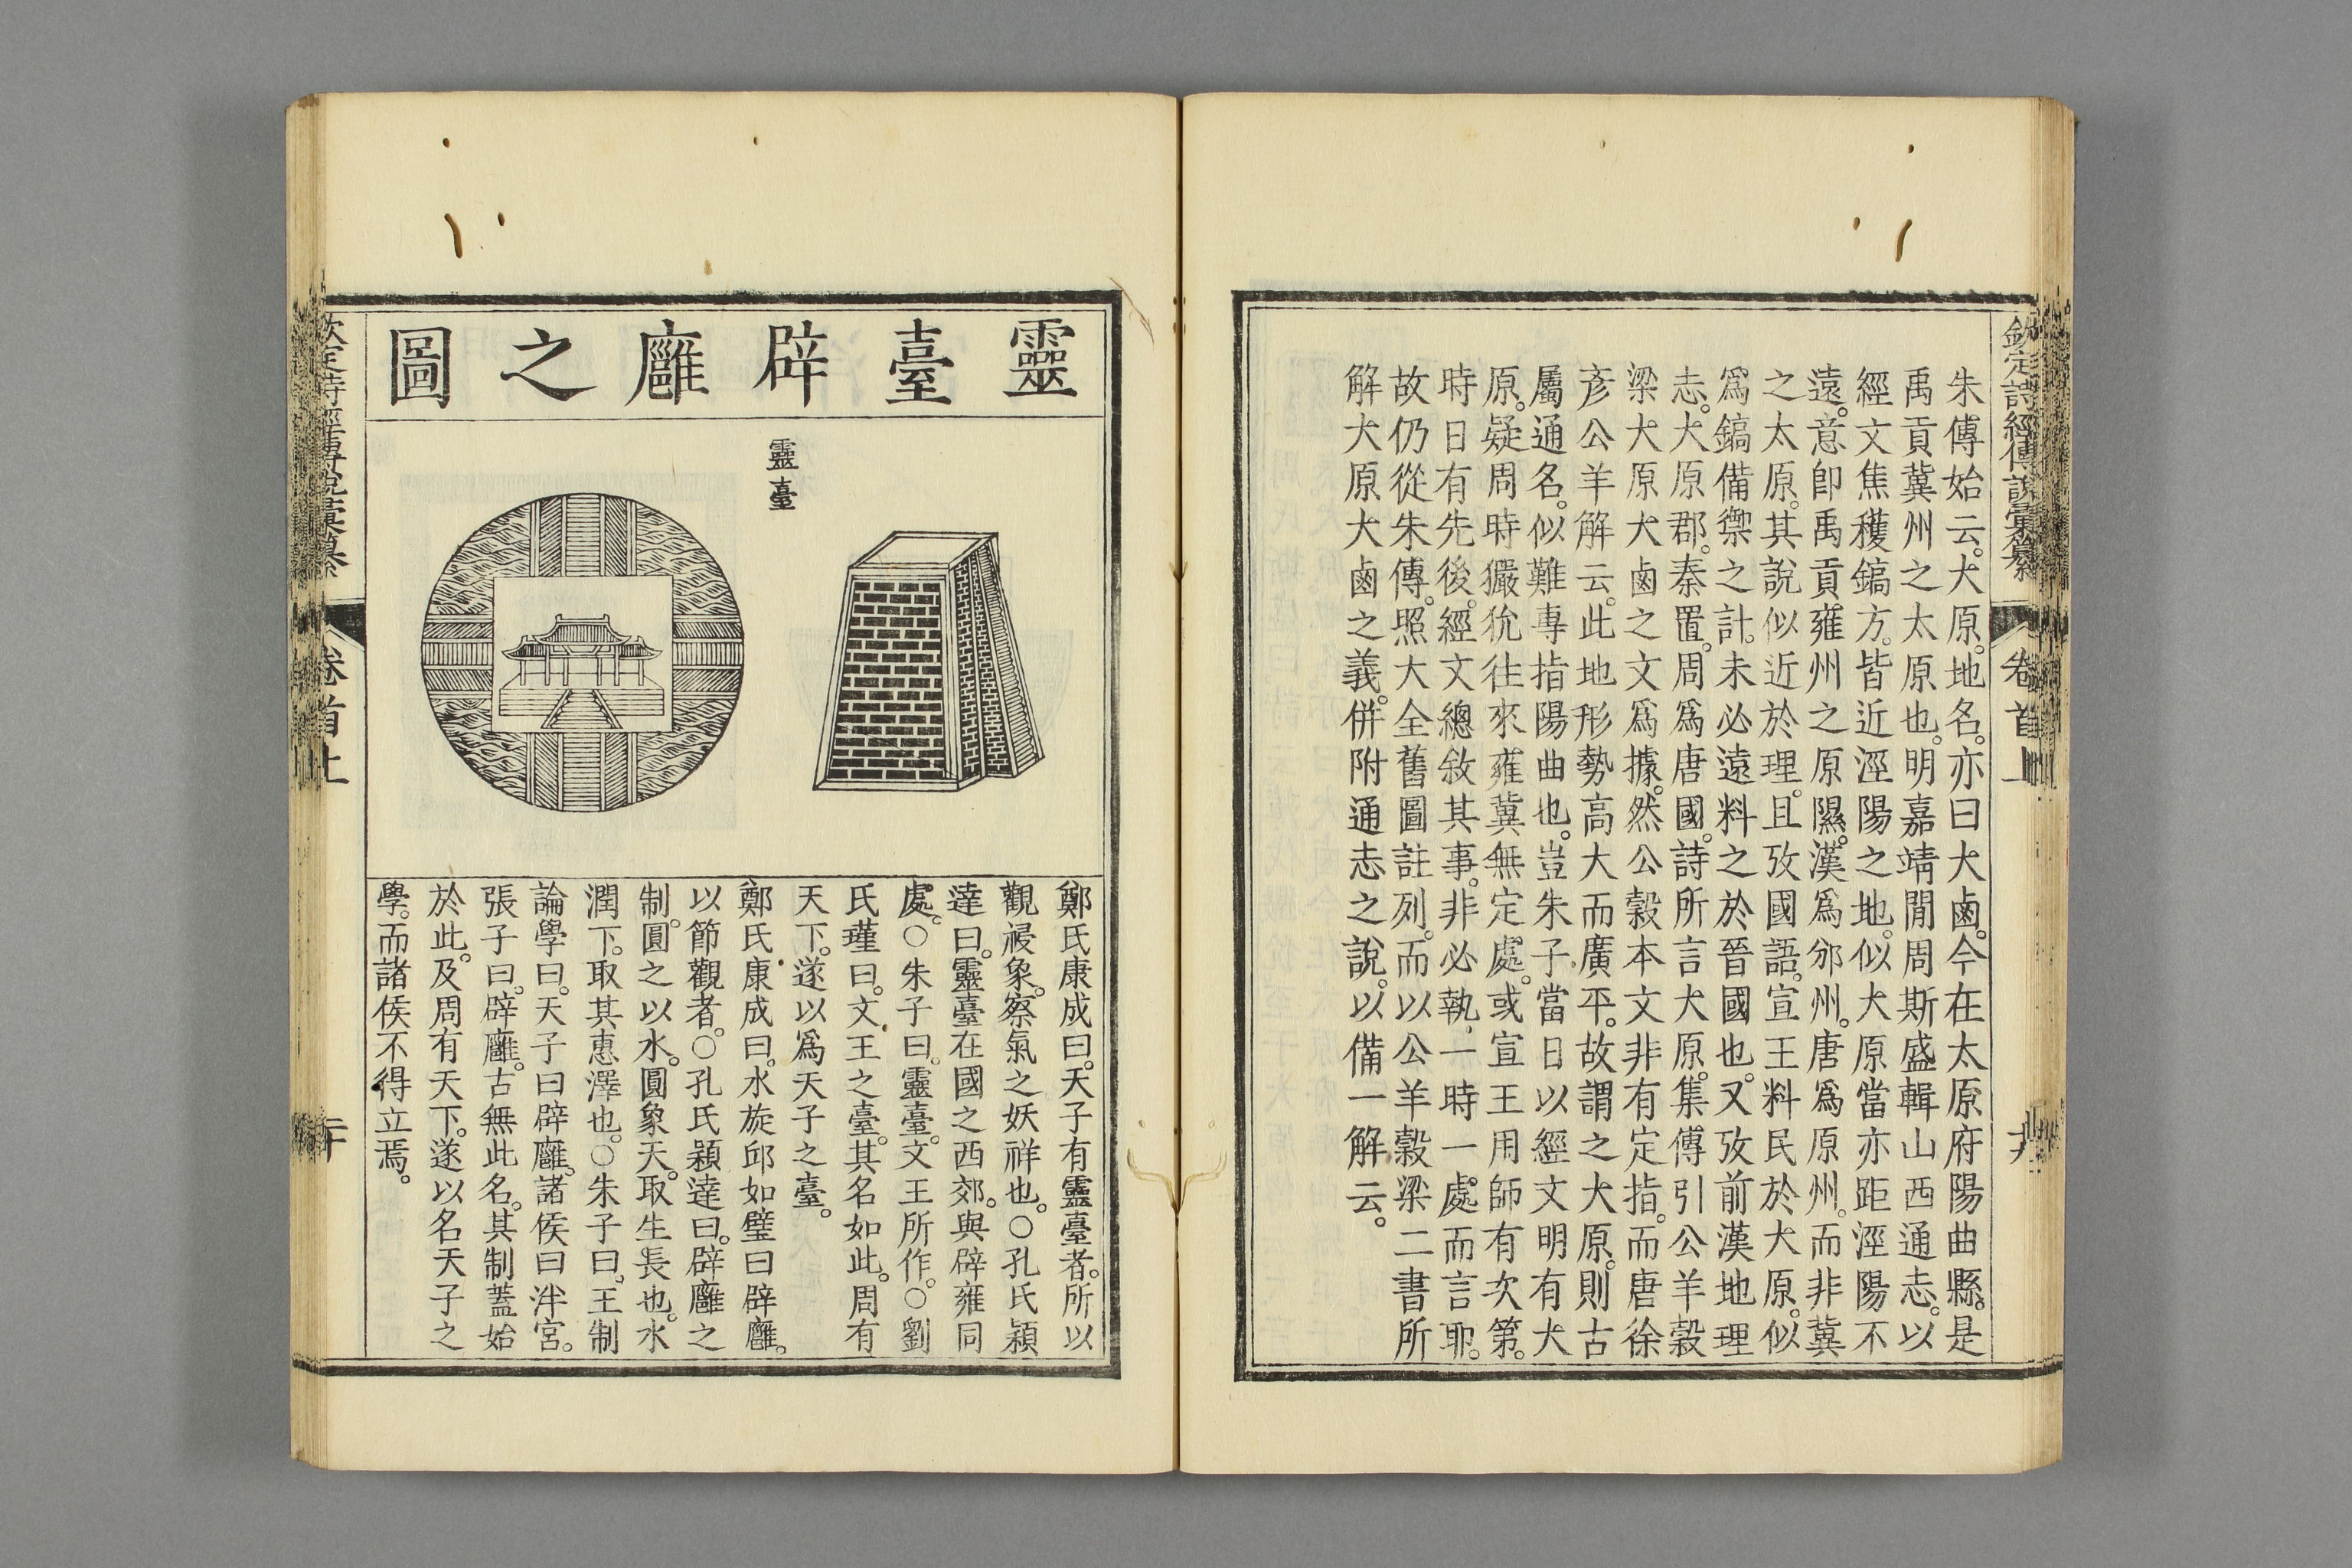 欽定詩經傳說彙纂 卷首上
朱傳始云。大原。地名。亦曰大鹵。今在太原府陽曲縣。是
禹貢冀州之太原也。明嘉靖閒周斯盛輯山西通志。以
經文焦穫鎬方。皆近涇陽之地。似大原當亦距涇陽不
遠。意卽禹貢。雍州之原隰。漢爲邠州。唐爲原州。而非冀
之太原。其說似近於理。且攷國語。宣王料民於大原。似
爲鎬備禦之計。未必遠料之於晉國也。又攷前漢地理
志。大原郡。秦置。周爲唐國。詩所言大原。集傳引公羊穀
梁大原大鹵之文爲據。然公穀本文非有定指。而唐徐
彥公羊解云。此地形勢高大而廣平。故謂之大原。則古
屬通名。似難專指陽曲也。豈朱子當日以經文明有大
原。疑周時玁狁往來雍冀無定處。或宣王用師有次第。
時日有先後。經文總敘其事。非必執一時一處而言耶。
故仍從朱傳。照大全舊圖註列。而以公羊穀梁二書所
解大原大鹵之義。併附通志之說。以備一解云。
靈臺辟廱之圖
靈臺
鄭氏康成曰。天子有靈臺者。所以
觀祲象。察氣之妖祥也。○孔氏穎
達曰。靈臺在國之西郊。與辟雍同
處。○朱子曰。靈臺。文王所作。○劉
氏瑾曰。文王之臺。其名如此。周有
天下。遂以爲天子之臺。
鄭氏康成曰。水旋邱如璧曰辟廱。
以節觀者。○孔氏穎達曰。辟廱之
制。圓之以水。圓象天。取生長也。水
潤下。取其惠澤也。○朱子曰。王制
論學曰。天子曰辟廱。諸侯曰泮宮。
張子曰。辟廱。古無此名。其制蓋始
於此。及周有天下。遂以名天子之
學。而諸侯不得立焉。
欽定詩經傳說彙纂 卷首上